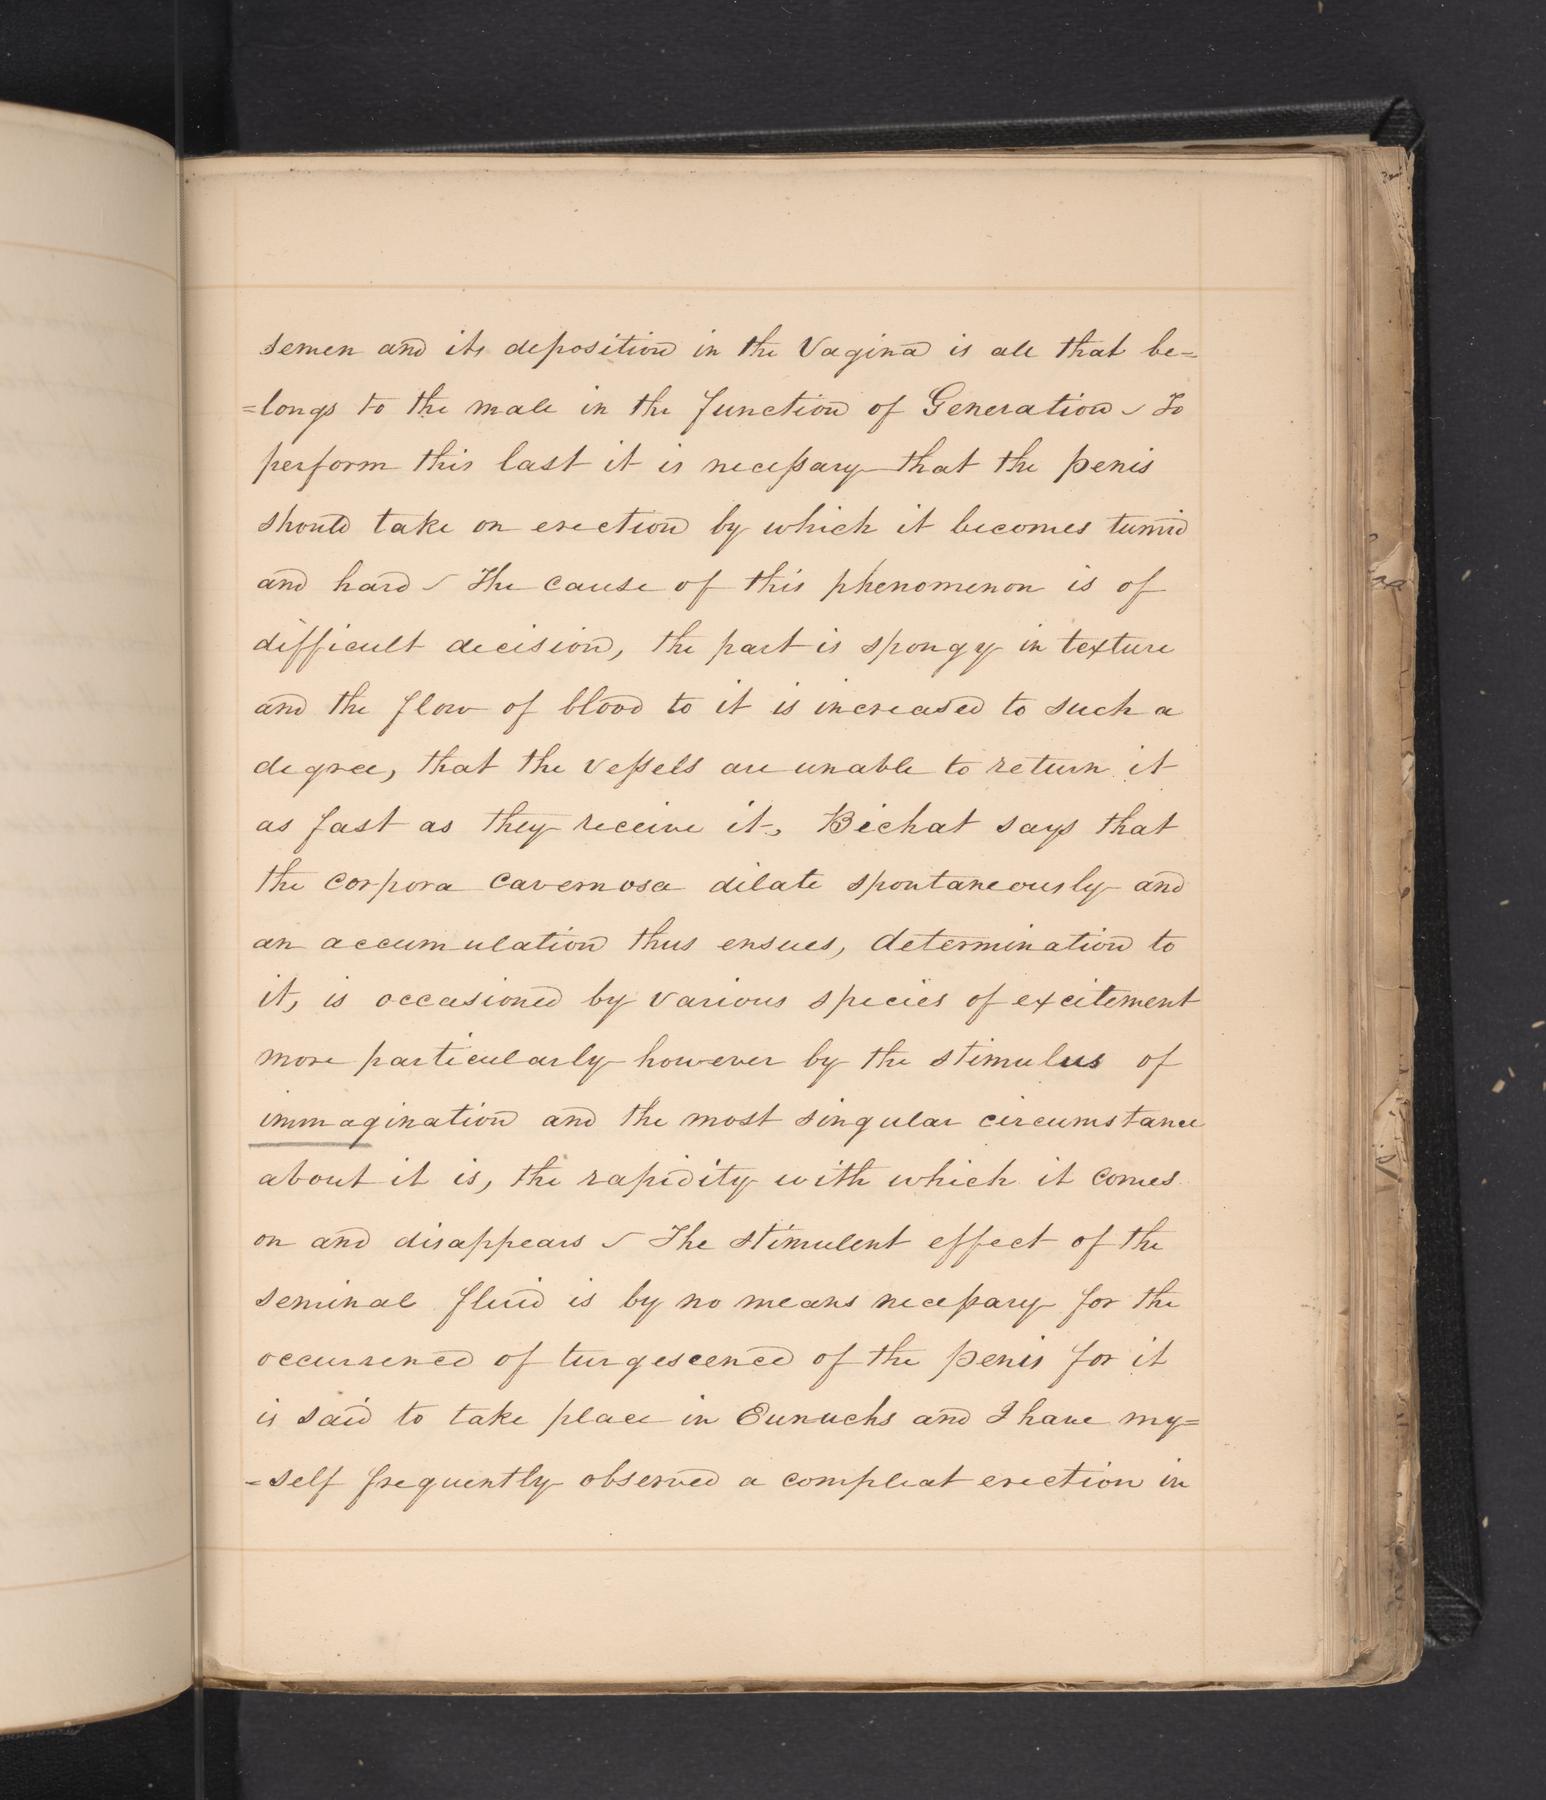 semen and its deposition in the Vagina is all that be=
=longs to the male in the function of Generation ~ To
perform this last it is necessary that the penis
should take on erection by which it becomes tumid
and hard ~ The cause of this phenomenon is of
difficult decision, the part is spongy in texture
and the flow of blood to it is increased to such a
degree, that the vessels are unable to return it
as fast as they receive it, Bichat says that
the corpora cavernosa dilate spontaneously and
an accumulation thus ensues, determination to
it, is occasioned by various species of excitement
more particularly however by the stimulus of
immagination and the most singular circumstance
about it is, the rapidity with which it comes
on and disappears ~ The stimulent effect of the
seminal fluid is by no means necessary for the
occurrence of turgescence of the penis for it
is said to take place in Eunuchs and I have my=
=self frequently observed a compleat erection in